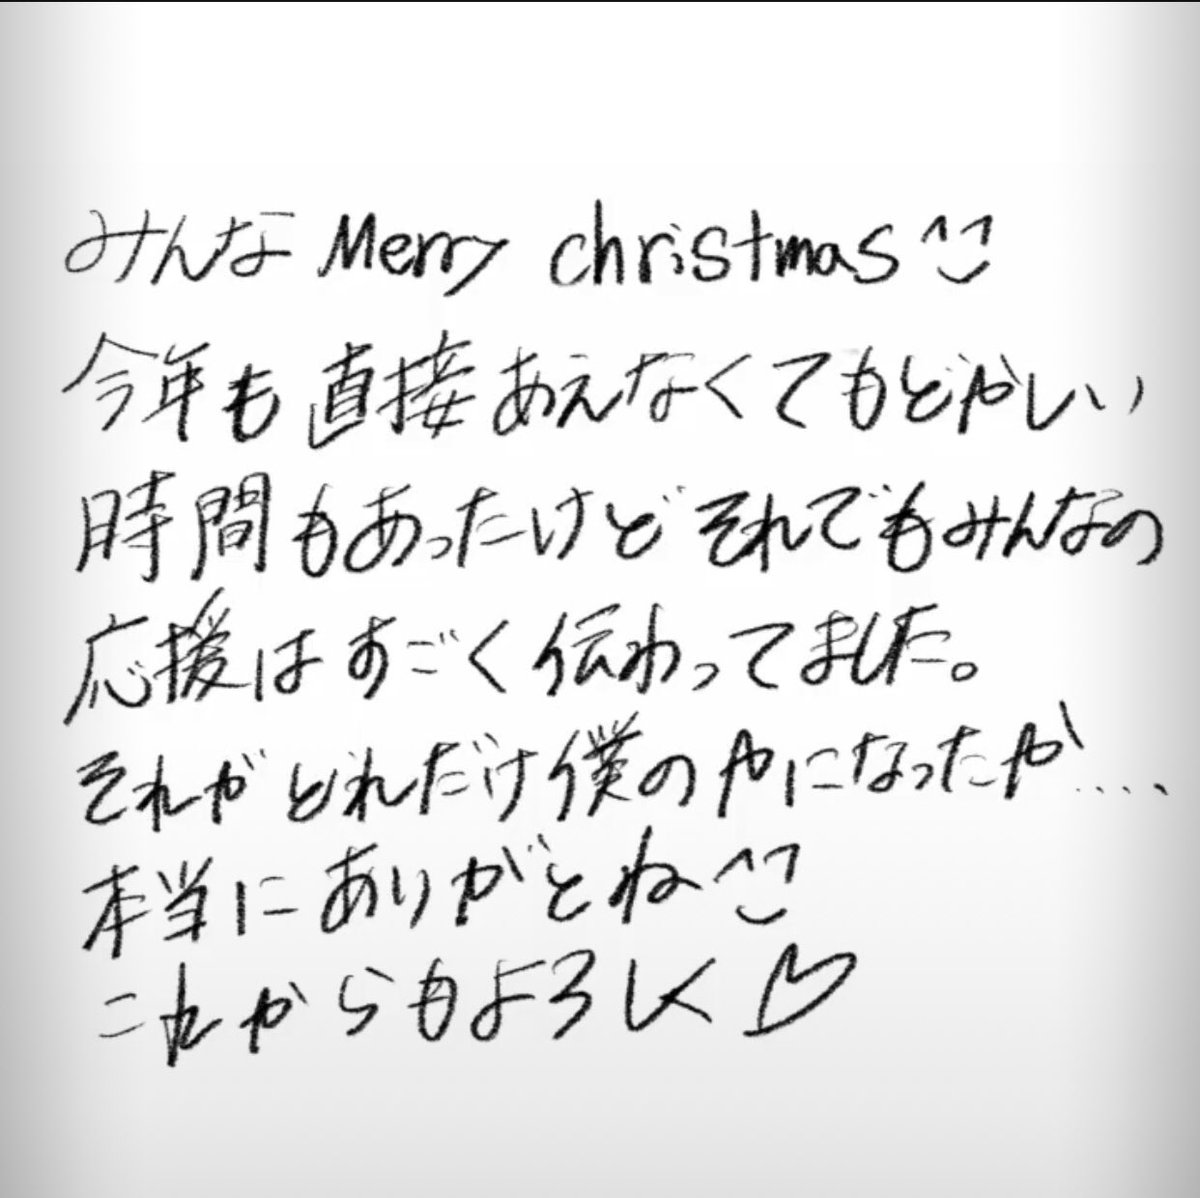 みんな Merry christmas
今年も直接あえなくてもどかしい
時間もあったけど それでもみんなの
応援は すごく伝わってました。
それが どれだけ僕の力になったか....
本当に ありがとね
これからもよろしく